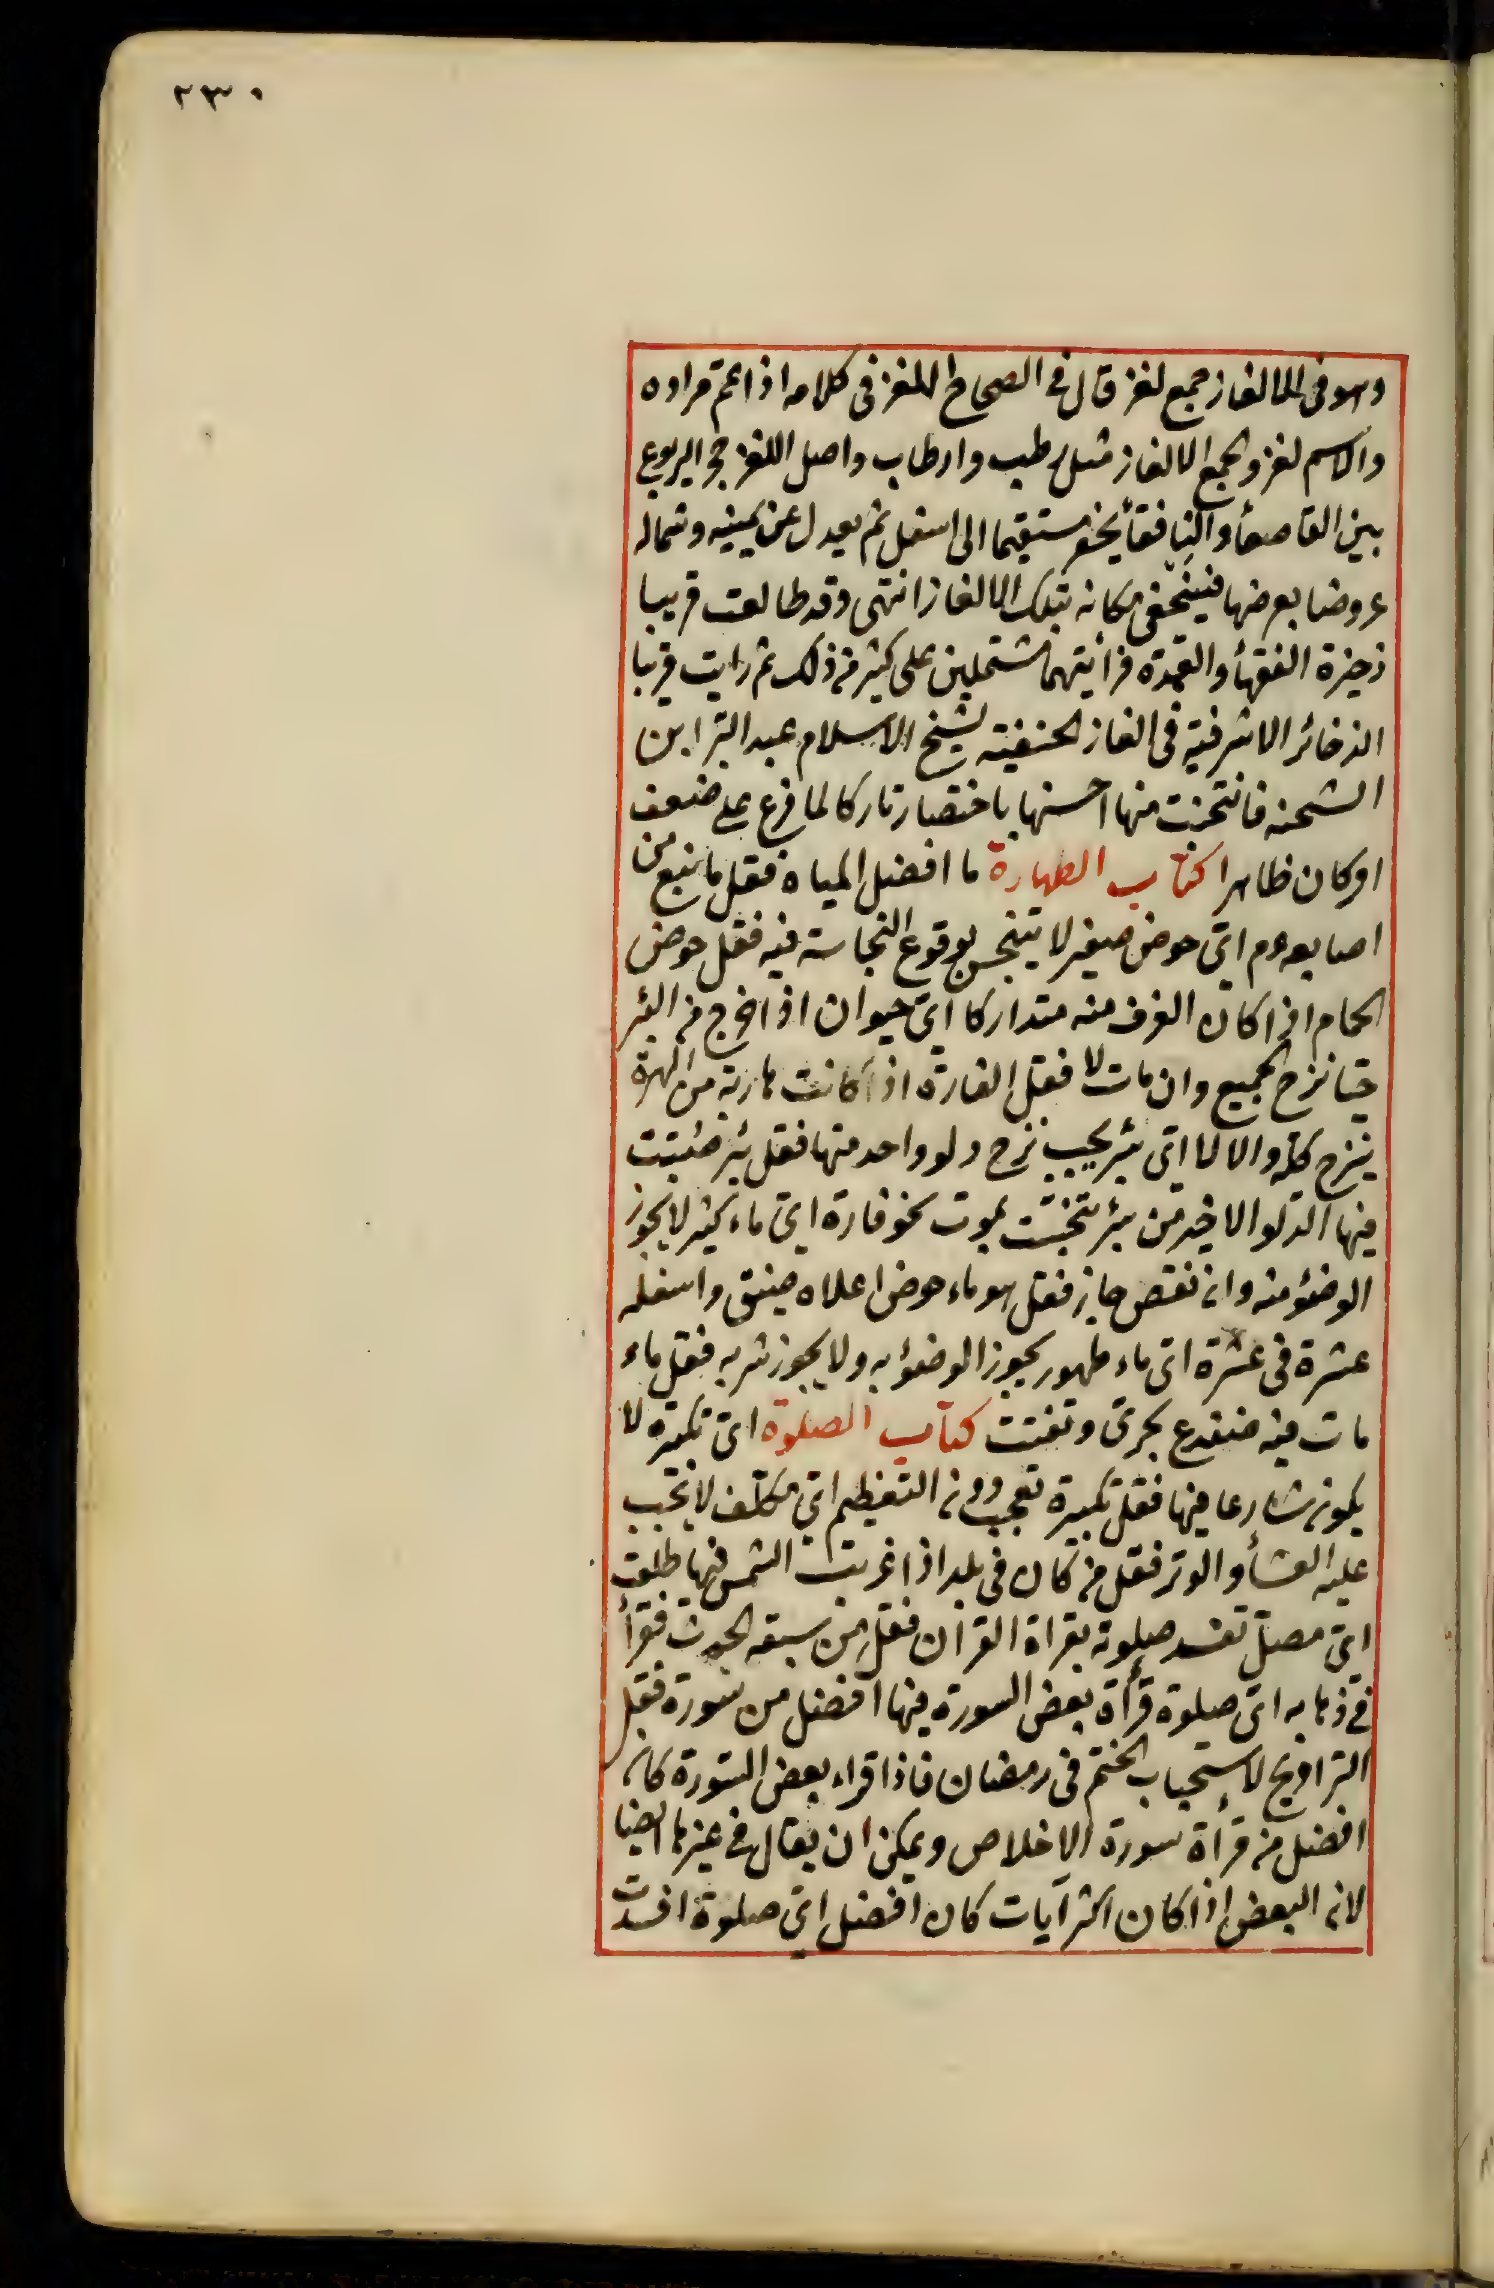 ٢٣٠
وهو فى الالغاز جمع لغز قال فى الصحاح اللغز فى كلامه اذا عمّ مراده
والاسم لغز والجمع الالغاز مثل رطب وارطاب واصل اللغز حجر اليربوع
بين القاصعأ والنافقأ يحفر مستقيما الى اسفل ثم يعدل عن يمينه وشماله
عروضا يعرضها فيخفى مكانه بتلك الالغاز انتهى وقد طالعت قريبا
ذخيرة الفقهأ والعمدة فرأيتهما مشتملين على كثير من ذلك ثم رايت قريبا
الذخائر الاشرفية فى الغاز الحنفية لشيخ الاسلام عبد البر ابن
الشحنه فانتخبت منها احسنها باختصار تاركا لما فرع على ضعف
او كان ظاهرا كتاب الطهارة ما افضل المياه فقل ما نبع من
اصابعه عم اىّ حوض صغير لا يتنجس بوقوع النجاسة فيه فقل حوض
الحمام اذا كان الغرف منه متداركا اىّ حيوان اذا اخرج من البئر
حيا نزح الجميع وان مات لا فقل الفارة اذا كانت هاربة من الهرة
ينزح كله والا لا اىّ بئر يجب نزح دلو واحد منها فقل بئر صبّت
فيها الدلو الاخير من بئر تنجّست بموت نحو فارة اىّ ماء كثير لا يجوز
الوضؤ منه وان نقص جاز فقل هو ماء حوض اعلاه ضيق واسفله
عشرة فى عشرة اىّ ماء طهور يجوز الوضؤ به ولا يجوز شربه فقل ماء
مات فيه ضفدع بحرىّ وتفتت كتاب الصلوة اىّ تكبيرة لا
يكون شارعا فيها فقل تكبيرة تعجب دون التعظيم اىّ مكلّف لا تجب
عليه العشأ والوتر فقل من كان فى بلد اذا غربت الشمس فيها طلعت
اىّ مصلّ تفسد صلوته بقراة القرآن فقل من سبقه الحدث فقرأ
فى ذهابه اىّ صلوة قرأة بعض السورة فيها افضل من سورة فقل
التراويح لاستحباب الختم فى رمضان فاذا قراء بعض السورة كان
افضل من قرأة سورة الاخلاص ويمكن ان يقال فى غيرها ايضا
لان البعض اذا كان اكثر آيات كان افضل اىّ صلوة افسدت